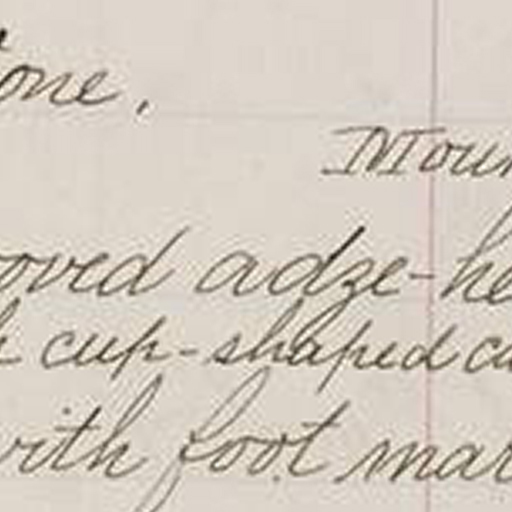 tone.
Moun
ooved adze-he
cup-shaped ca
with foot mar